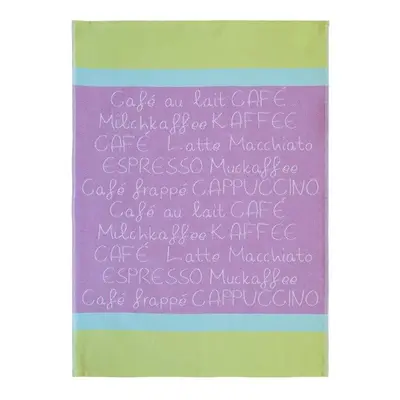 Café au lait CAFÉ
Milchkaffee KAFFEE
CAFÉ Latte Macchiato
ESPRESSO Muckaffee
Café frappé CAPPUCCINO
Café au lait CAFÉ
Milchkaffee KAFFEE
CAFÉ Latte Macchiato
ESPRESSO Muckaffee
Café frappé CAPPUCCINO